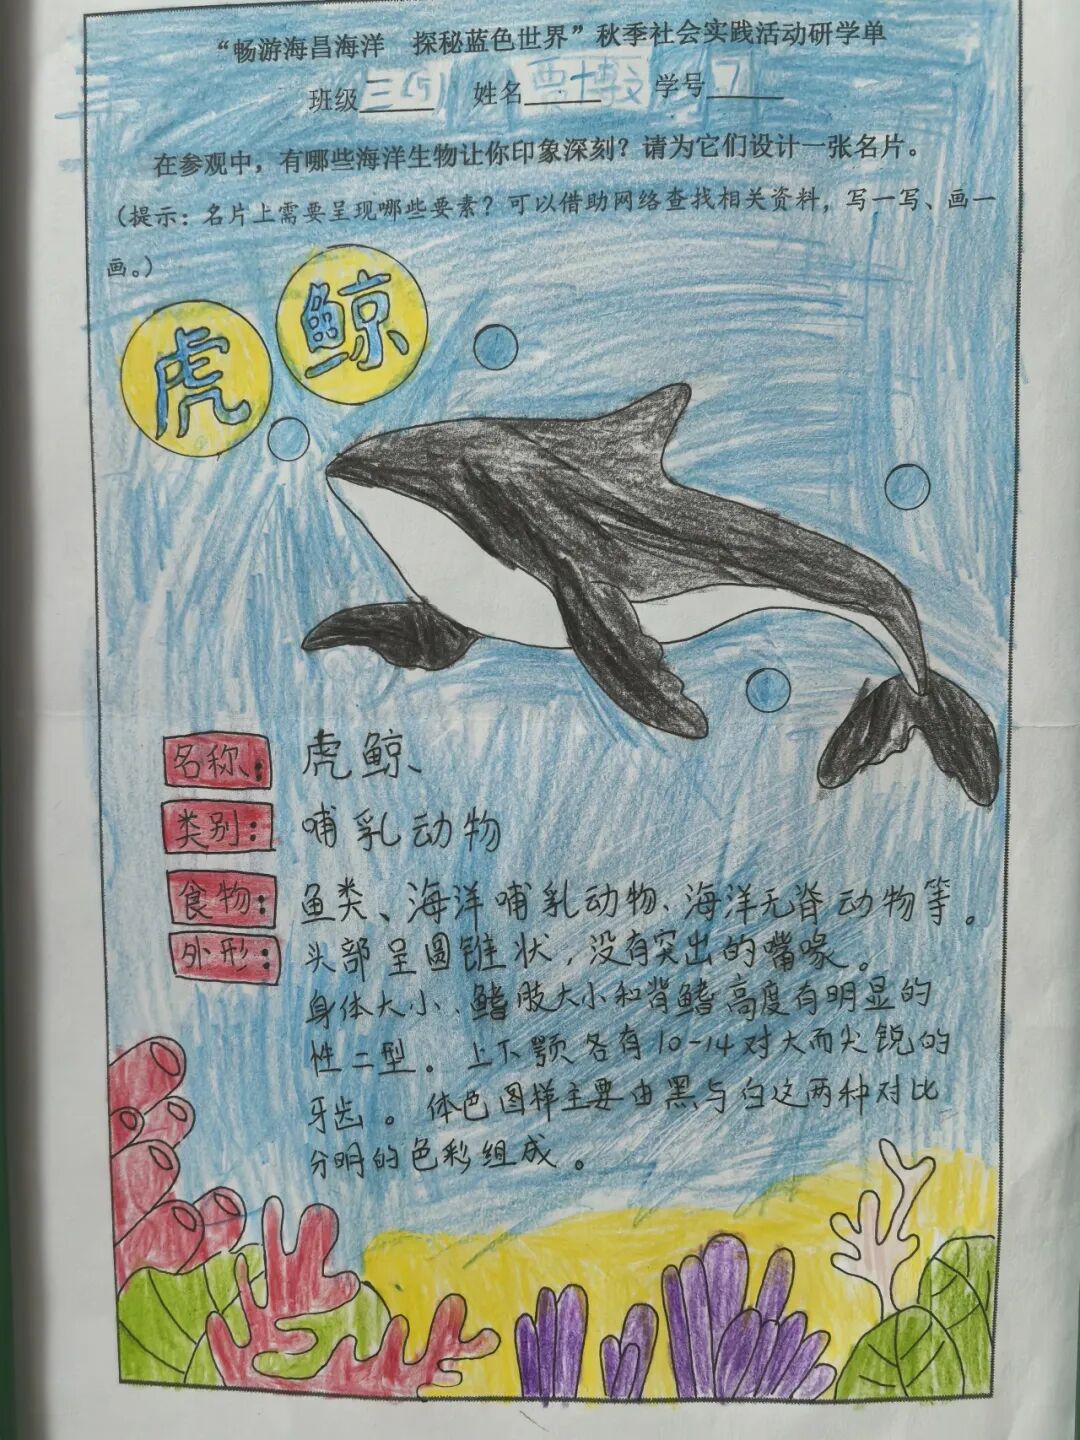 “畅游海昌海洋 探秘蓝色世界”秋季社会实践活动研学单
班级 姓名 学号 7
在参观中，有哪些海洋生物让你印象深刻？请为它们设计一张名片。
（提示：名片上需要呈现哪些要素？可以借助网络查找相关资料，写一写、画一
画。）
虎鲸
名称：虎鲸
类别：哺乳动物
食物：鱼类、海洋哺乳动物、海洋无脊动物等。
外形：头部呈圆锥状，没有突出的嘴喙。
身体大小、鳍肢大小和背鳍高度有明显的
性二型。上下颚各有10-14对大而尖锐的
牙齿。体色图样主要由黑与白这两种对比
分明的色彩组成。